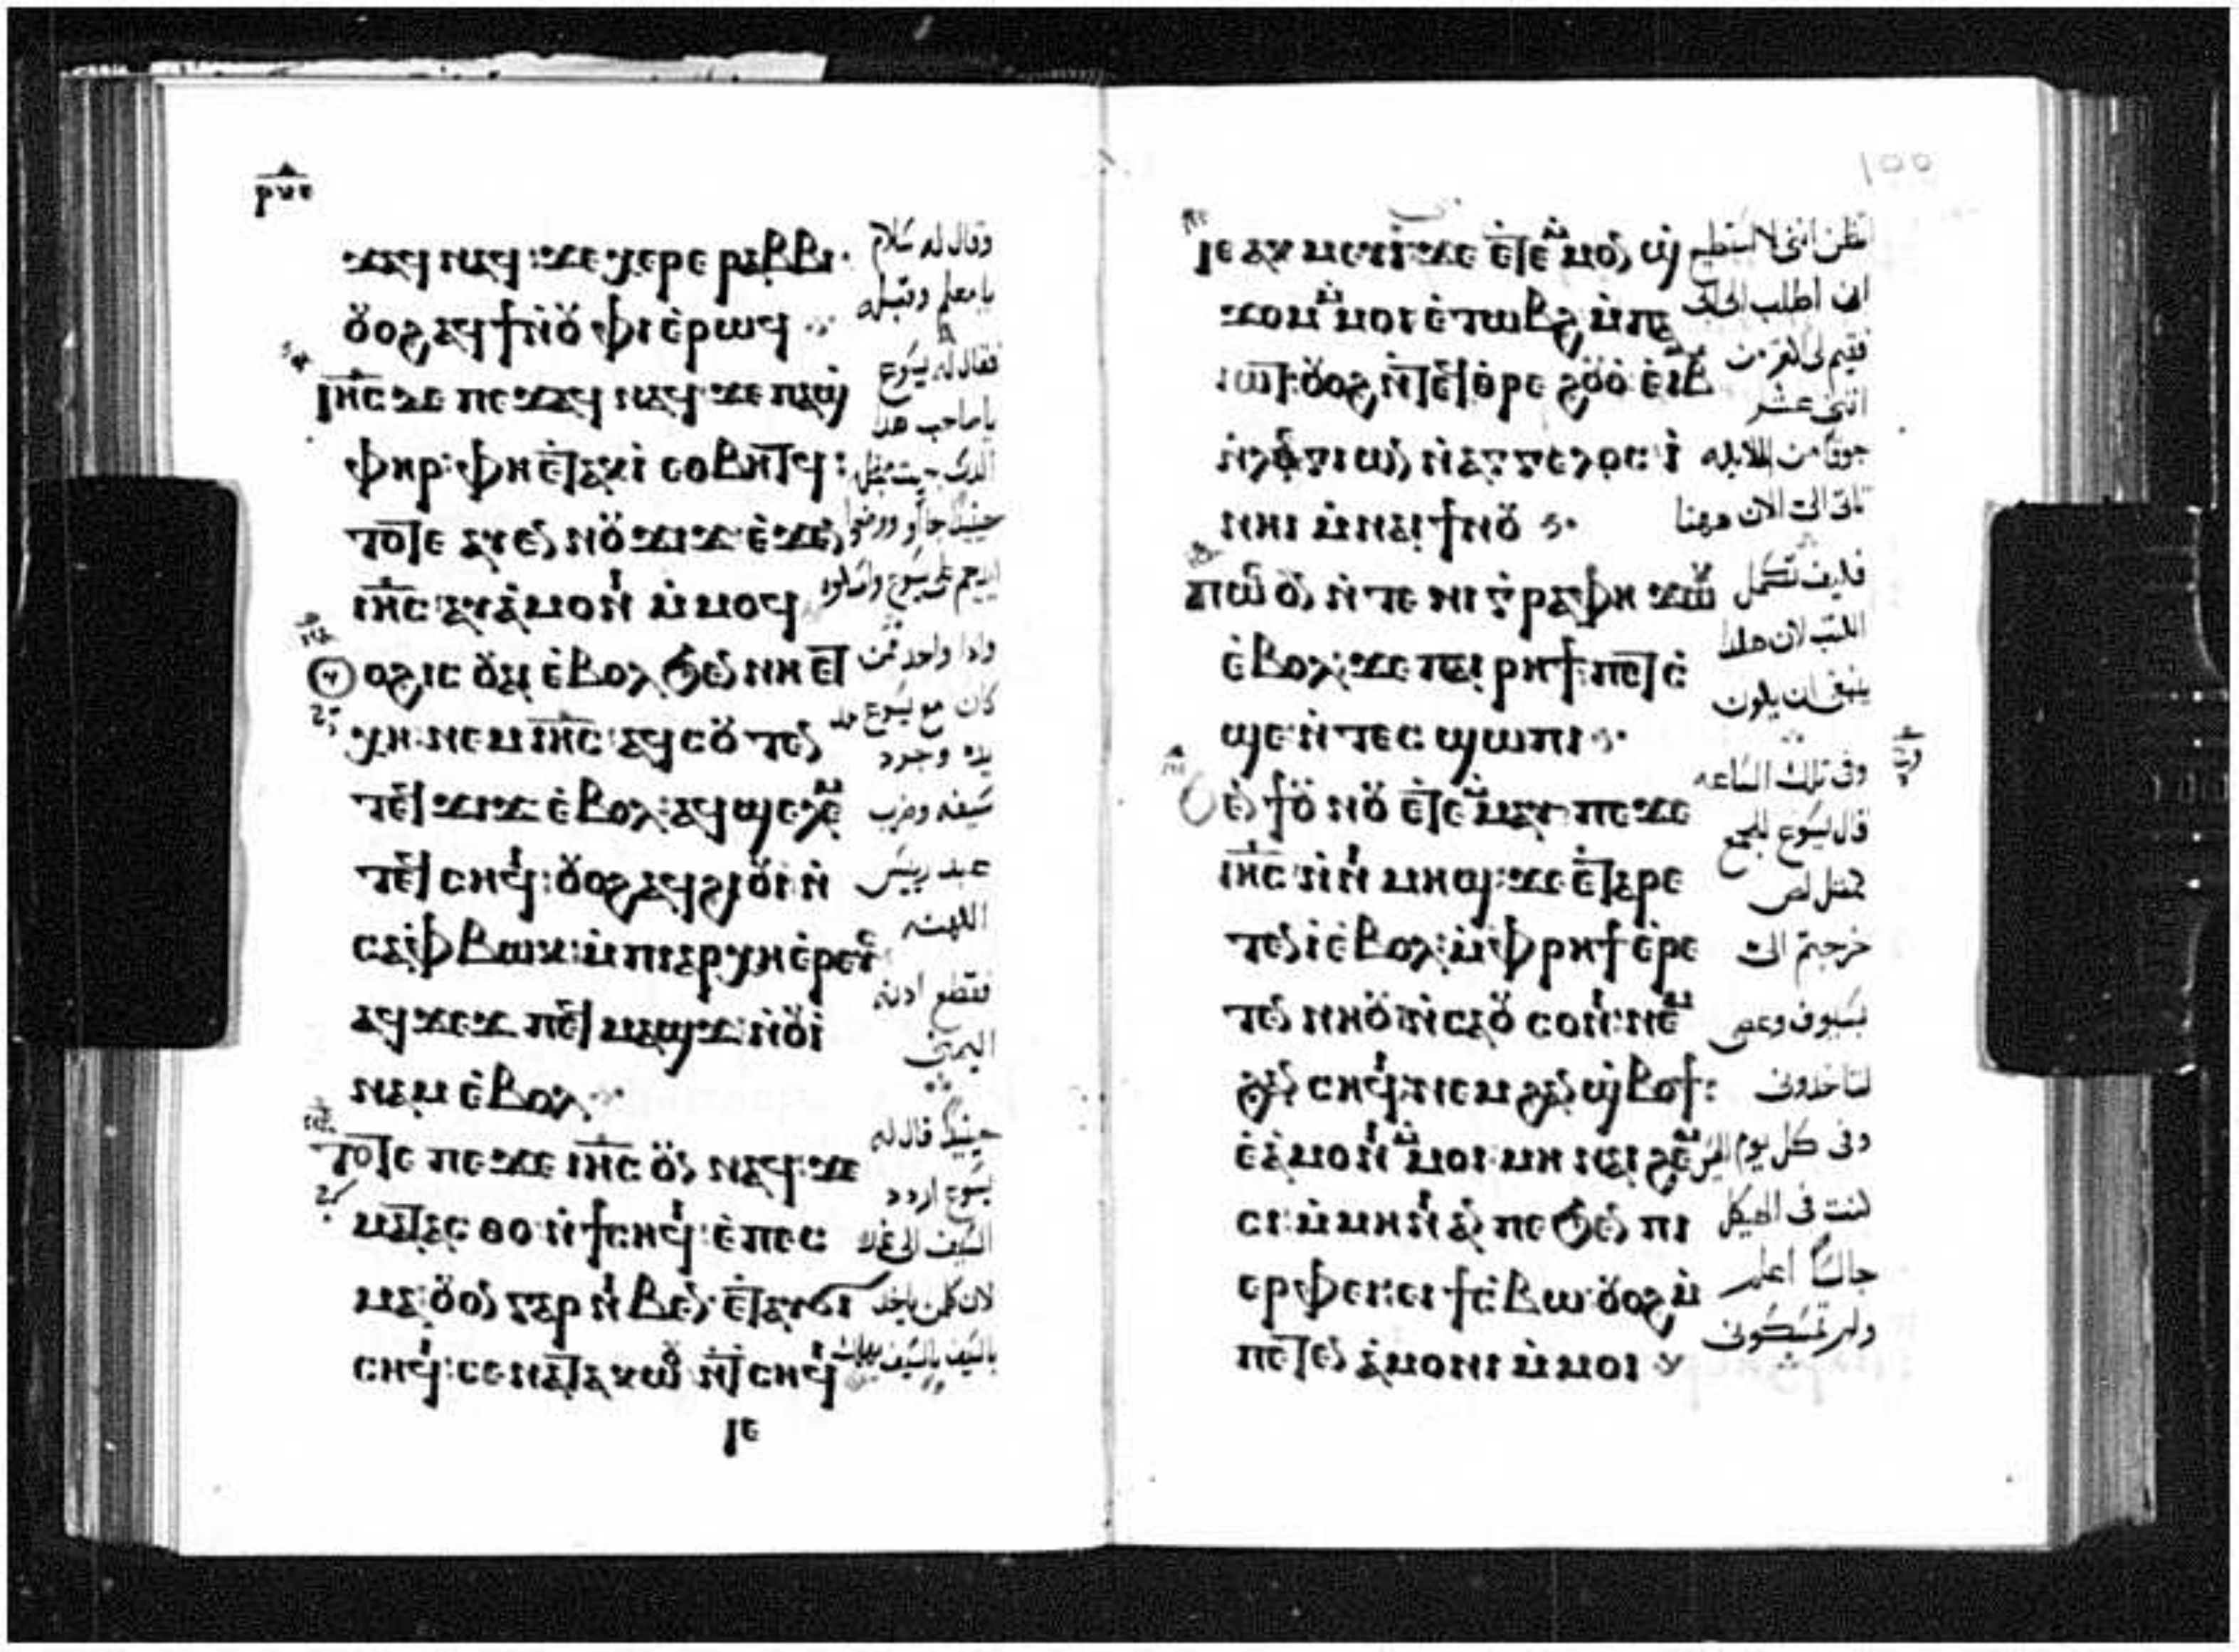 ⲣⲛⲉ
ϫⲁϥ ⲛⲁϥ: ϫⲉ ⲭⲉⲣⲉ ⲣⲁⲃⲃⲓ·
ⲟⲩⲟϩ ⲁϥϯⲡⲓⲟⲩ ⲫⲓ ⲉ̀ⲣⲱϥ
ⲓⲏ̅ⲥ ⲇⲉ ⲡⲉϫⲁϥ ⲛⲁϥ ϫⲉ ⲡⲁϣ
ⲫⲏⲣ: ⲫⲏ ⲉ̀ⲧⲁⲕⲓ̀ ⲉⲟⲃⲏⲧϥ:
ⲧⲟⲧⲉ ⲁⲩⲉⲛ ⲛⲟⲩϫⲓϫ ⲉ̀ϫⲉⲛ
ⲓⲏ̅ⲥ ⲁⲩⲁ̀ⲙⲟⲛⲓ ⲙ̀ⲙⲟϥ
ⲟⲩⲟϩ ⲓⲥ ⲟⲩⲁⲓ ⲉ̀ⲃⲟⲗ ϧⲉⲛ ⲛⲏ ⲉⲧ
ⲭⲏ ⲛⲉⲙ ⲓⲏ̅ⲥ ⲁϥⲥⲟⲩⲧⲉⲛ
ⲧⲉϥϫⲓϫ ⲉ̀ⲃⲟⲗ: ⲁϥϣⲉⲗⲉⲙ
ⲧⲉϥⲥⲏϥⲓ: ⲟⲩⲟϩ ⲁϥϩⲓⲟⲩⲓ ⲛ̀
ⲥⲁⲫ̀ⲃⲱⲕ: ⲙ̀ⲡⲓⲁⲣⲭⲏⲉ̀ⲣⲉⲩⲥ
ⲁϥϫⲉϫ ⲡⲉϥⲙⲁϣϫ ⲛ̀ⲟⲩⲓ̀
ⲛⲁⲙ ⲉ̀ⲃⲟⲗ
ⲧⲟⲧⲉ ⲡⲉϫⲉ ⲓⲏ̅ⲥ ⲟⲩⲛ ⲛⲁϥ: ϫⲉ
ⲙⲁⲧⲁⲥⲑⲟ ⲛ̀ϯⲥⲏϥⲓ: ⲉ̀ⲡⲉⲥ
ⲙⲁ: ⲟⲩⲟⲛ ⲅⲁⲣ ⲛⲓⲃⲉⲛ ⲉ̀ⲧⲁⲩϭⲓ
ⲥⲏϥⲓ: ⲥⲉⲛⲁⲧⲁⲕⲱⲟⲩ ⲛ̀ⲧⲥⲏϥⲓ
ⲓⲉ
وقال له سلام
يا معلم وقبله
فقال له يسوع
يا صاحب هذا
الذى جيت
حينيذ جاوا ووضعوا
ايديهم على يسوع وامسكوه
واذا واحد ممن
كان مع يسوع مد
يده وجرد
سيفه وضرب
عبد رييس
الكهنه
فقطع ادنه
اليمنى
حينيذ قال له
يسوع اردد
السيف الى غمده
لان كلمن ياخد
بالسيف بالسيف يهلك
١٥٥
ⲓⲉ ⲁⲕ ⲙⲉⲩⲓ̀ ϫⲉ ⲉ̀ⲧⲉ ⲙⲙⲟⲛ ϣ
ϫⲟⲙ ⲙⲙⲟⲓ ⲉ̀ⲧⲱⲃϩ ⲙ̀ⲡⲁ
ⲓⲱⲧ: ⲟⲩⲟϩ ⲛ̀ⲧⲉϥⲑⲣⲉ ϩⲟⲩⲟ̀ ⲉ̀ⲓⲃ
ⲛ̀ⲗⲉⲅⲓⲱⲛ ⲛ̀ⲁⲅⲅⲉⲗⲟⲥ: ⲓ̀
ⲛⲏⲓ ⲙ̀ⲛⲁⲓ ϯⲛⲟⲩ
ⲡⲱⲥ ⲟⲩⲛ ⲛ̀ⲧⲉ ⲛⲓⲅⲣⲁⲫⲏ ϫⲱⲕ
ⲉ̀ⲃⲟⲗ: ϫⲉ ⲡⲁⲓⲣⲏϯ: ⲡⲉⲧⲥ̀
ϣⲉ: ⲛ̀ⲧⲉⲥ ϣⲱⲡⲓ
ϧⲉⲛ ϯⲟⲩⲛⲟⲩ ⲉ̀ⲧⲉ ⲙⲙⲁⲩ ⲡⲉϫⲉ
ⲓⲏ̅ⲥ: ⲛ̀ⲛⲓ ⲙⲏϣ: ϫⲉ ⲉ̀ⲧⲁⲣⲉ
ⲧⲉⲛⲓ̀ ⲉ̀ⲃⲟⲗ: ⲙ̀ⲫ̀ⲣⲏϯ ⲉ̀ⲣⲉ
ⲧⲉⲛ ⲛⲏⲟⲩ ⲛ̀ⲥⲁⲟⲩ ⲥⲟⲛⲓ: ⲛⲉⲙ
ϩⲁⲛ ⲥⲏϥⲓ: ⲛⲉⲙ ϩⲁⲛ ϣⲃⲟϯ:
ⲉ̀ⲁ̀ⲙⲟⲛⲓ ⲙⲙⲟⲓ: ⲙⲏ ⲛⲁⲓ ϩⲉⲙ
ⲥⲓ: ⲙ̀ⲙⲏⲛⲓ ⲁⲛ ⲡⲉ ϧⲉⲛ ⲡⲓ
ⲉⲣⲫⲉⲓ: ⲉⲓ ϯⲥ̀ⲃⲱ: ⲟⲩⲟϩ ⲙ̀
ⲡⲉⲧⲉⲛ ⲁ̀ⲙⲟⲛⲓ ⲙ̀ⲙⲟⲓ
اتظن اننى لا استطيع
ان اطلب الى
فيقيم لى اكثر من
اثنى عشر
جوقا من الملايكه
تاتى الى الان ههنا
فكيف تكمل
الكتب لان هكذا
ينبغى ان يكون
وفى تلك الساعه
قال يسوع للجمع
كمثل لص
خرجتم الى
بسيوف وعصى
لتاخذونى
وفى كل يوم
كنت فى الهيكل
جالسا اعلم
ولم تمسكونى